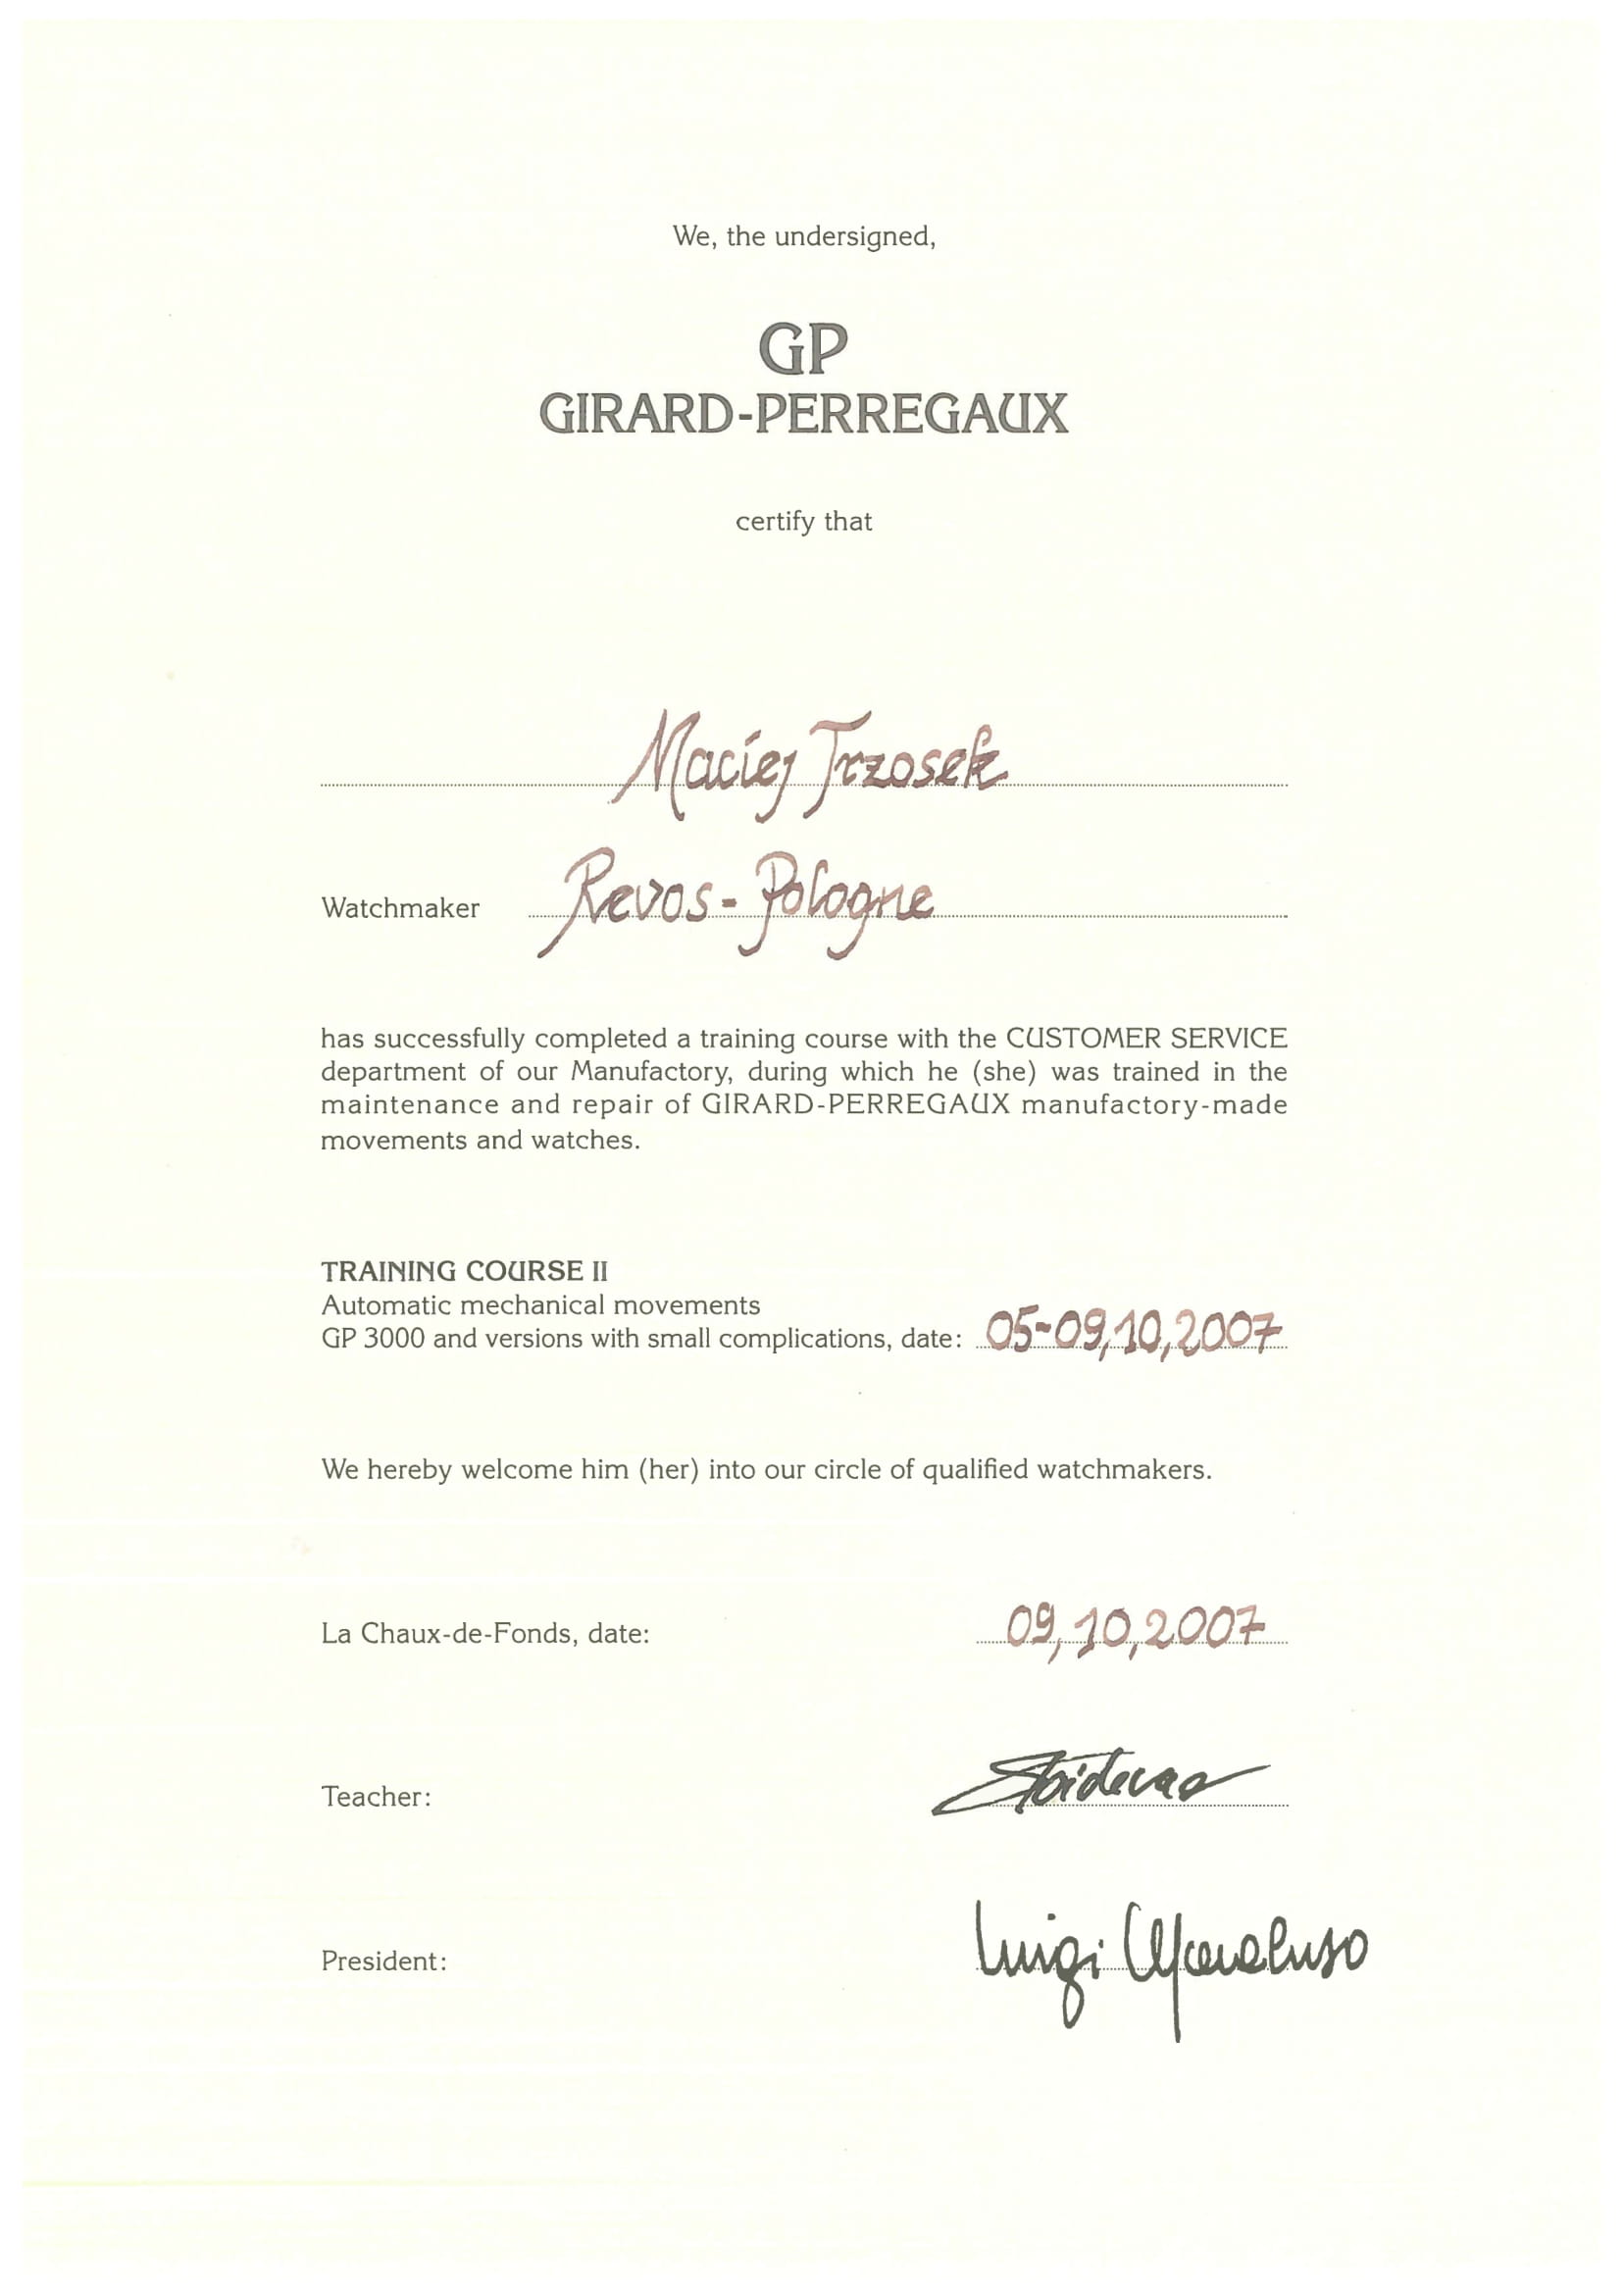 We, the undersigned,
GP
GIRARD-PERREGAUX
certify that
Maciej Trzosek
Watchmaker Revos-Pologne
has successfully completed a training course with the CUSTOMER SERVICE
department of our Manufactory, during which he (she) was trained in the
maintenance and repair of GIRARD-PERREGAUX manufactory-made
movements and watches.
TRAINING COURSE II
Automatic mechanical movements
GP 3000 and versions with small complications, date: 05-09,10,2007
We hereby welcome him (her) into our circle of qualified watchmakers.
La Chaux-de-Fonds, date: 09,10,2007
Teacher:
President: Luigi Macaluso